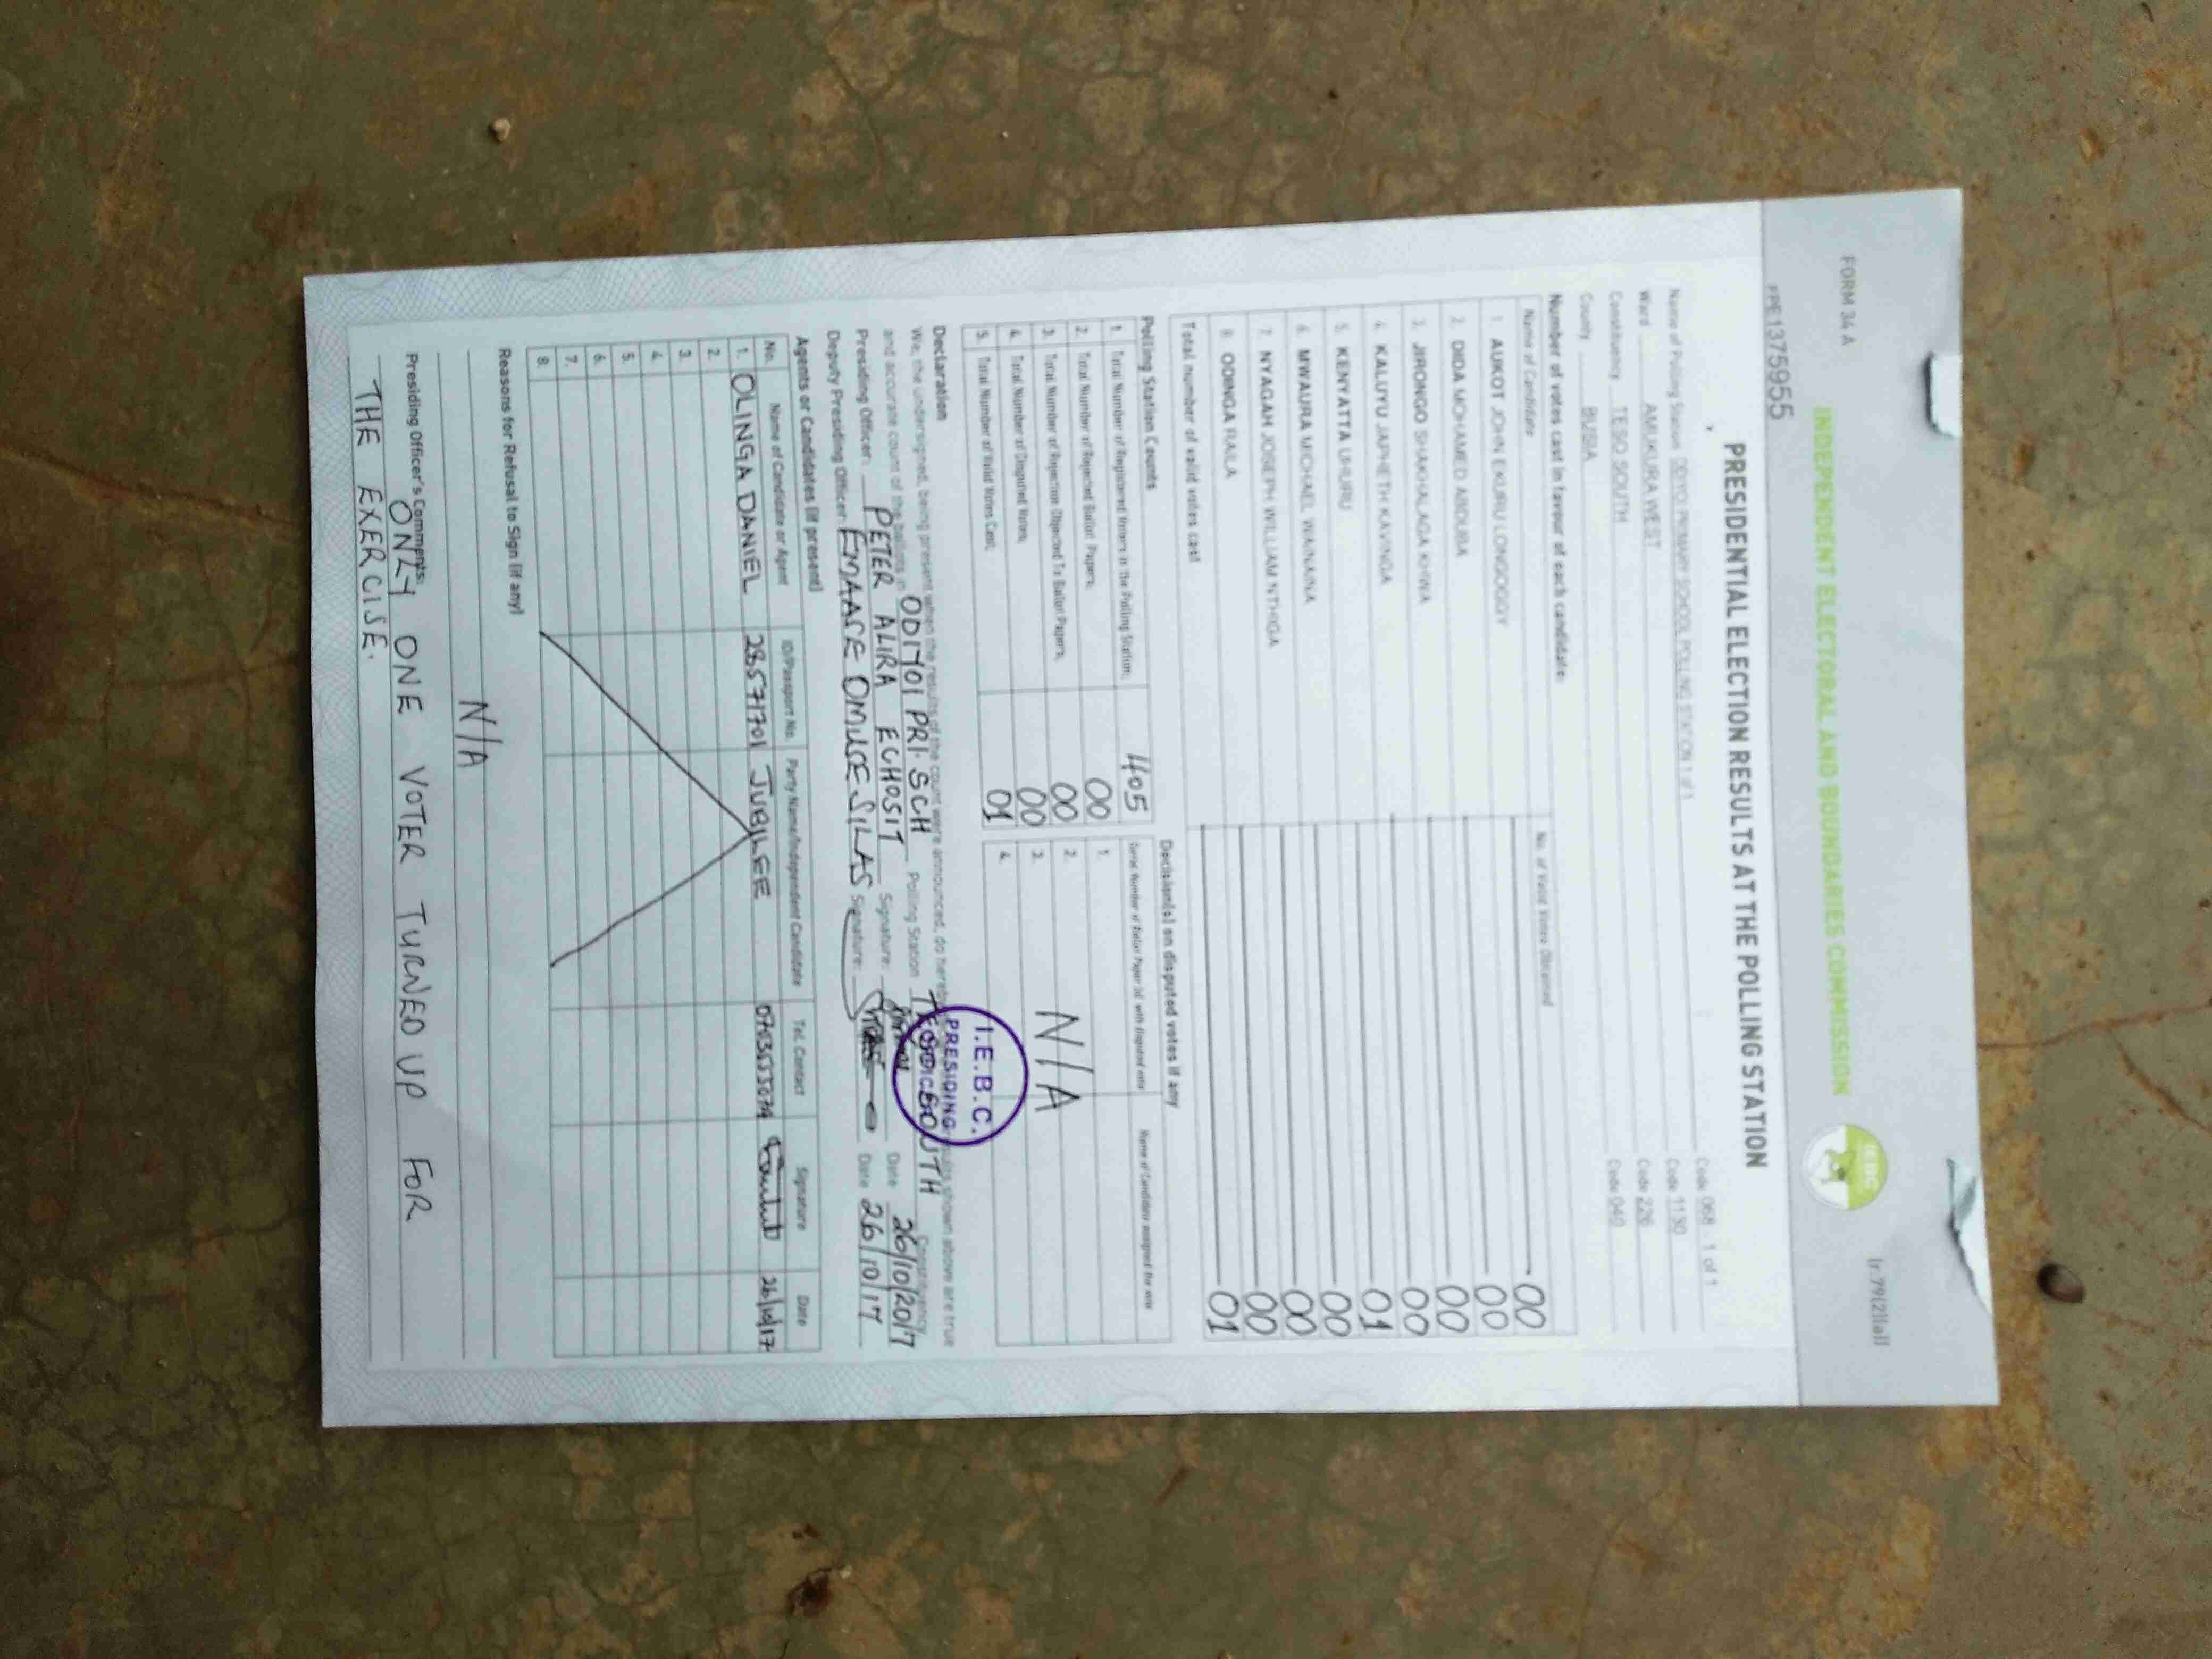 FORM 34 A
INDEPENDENT ELECTORAL AND BOUNDARIES COMMISSION
IEBC
(r.79(2)(a))
FPE1375955
PRESIDENTIAL ELECTION RESULTS AT THE POLLING STATION
Name of Polling Station PRIMARY SCHOOL POLLING STATION 1 of 1 Code 068 1 of 1
Ward AMUKURA WEST Code 1130
Constituency TESO SOUTH Code 226
County BUSIA Code 040
Number of votes cast in favour of each candidate:
Name of Candidate No. of Valid Votes Obtained
1. AUKOT JOHN EKURU LONGOGGY 00
2. DIDA MOHAMED ABDUBA 00
3. JIRONGO SHAKHALAGA KHWA 00
4. KALUYU JAPHETH KAVINGA 00
5. KENYATTA UHURU 01
6. MWAURA MICHAEL WAINAINA 00
7. NYAGAH JOSEPH WILLIAM NTHIGA 00
8. ODINGA RAILA 00
Total number of valid votes cast 01
Polling Station Counts
1. Total Number of Registered Voters in the Polling Station; 405
2. Total Number of Rejected Ballot Papers; 00
3. Total Number of Rejection Objected To Ballot Papers; 00
4. Total Number of Disputed Votes; 00
5. Total Number of Valid Votes Cast; 01
Decision(s) on disputed votes if any
Serial Number of Ballot Paper (s) with disputed vote Name of Candidate assigned the vote
1.
2.
3.
4.
N/A
Declaration
We, the undersigned, being present when the results of the count were announced, do hereby shown above are true
and accurate count of the ballots in ODIYOI PRI. SCH Polling Station TESO SOUTH Constituency
I.E.B.C.
PRESIDING
OFFICER
Presiding Officer: PETER ALIRA ECHOSIT Signature: Date 26/10/2017
Deputy Presiding Officer: EMAASE OMUSE SILAS Signature: Date 26/10/17
Agents or Candidates (if present)
No. Name of Candidate or Agent ID/Passport No. Party Name/Independent Candidate Tel. Contact Signature Date
1. OLINGA DANIEL 28571701 JUBILEE 26/10/17
2.
3.
4.
5.
6.
7.
8.
Reasons for Refusal to Sign (if any)
N/A
Presiding Officer's Comments:
ONLY ONE VOTER TURNED UP FOR
THE EXERCISE.